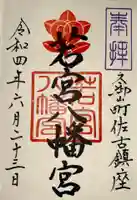 奉拝
郡山町佐古鎮座
若宮八幡宮
令和四年六月二十三日